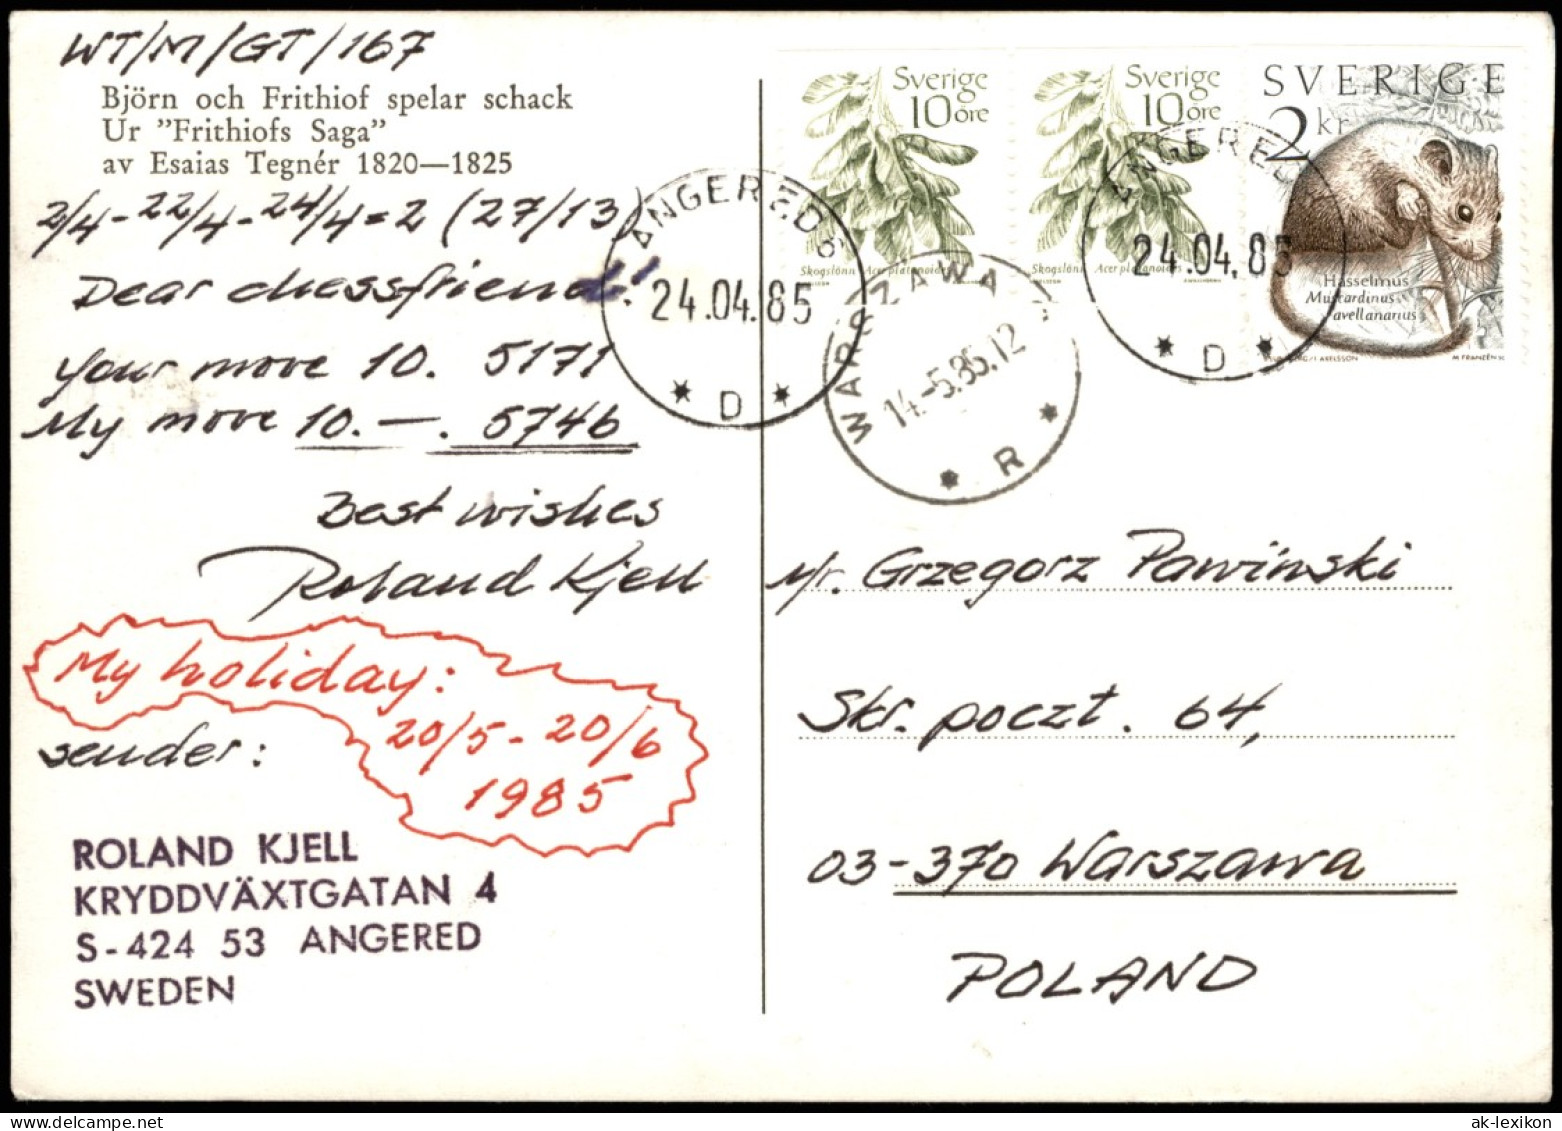 WT/M/GT/167
Björn och Frithiof spelar schack
Ur "Frithiofs Saga"
av Esaias Tegnér 1820—1825
2/4 - 22/4 - 24/4 = 2 (27/13)
Dear chessfriend!
Your move 10. 5171
My move 10. —. 5746
Best wishes
Roland Kjell
My holiday:
20/5 - 20/6
1985
sender:
ROLAND KJELL
KRYDDVÄXTGATAN 4
S-424 53 ANGERED
SWEDEN
Sverige
10 öre
Skogslönn Acer platanoides
Sverige
10 öre
Skogslönn Acer platanoides
SVERIGE
2 kr
Hasselmus
Muscardinus
avellanarius
M FRANZÉN SC
ANGERED
24.04.85
* D *
WARSZAWA
14.-5.85.12
* R *
ANGERED
24.04.85
* D *
Mr. Grzegorz Pawiński
Skr. poczt. 64,
03-370 Warszawa
POLAND
ak-lexikon.com